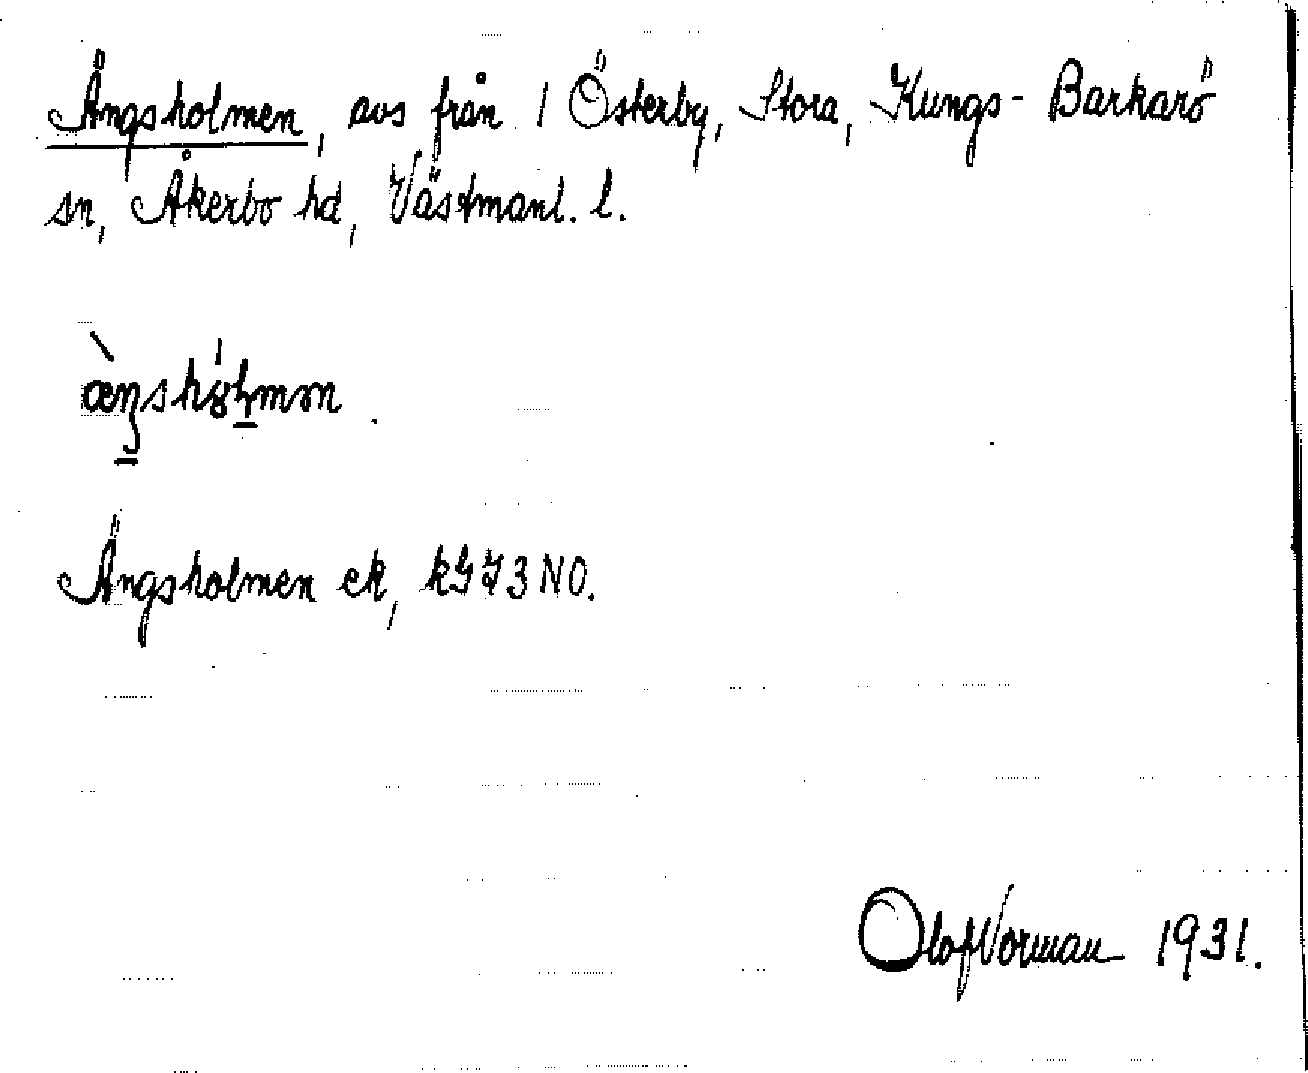 Ängsholmen, avs från 1 Österby, Stora, Kungs-Barkarö
sn, Åkerbo hd, Västmanl. l.
Ängsholmen ek, kGJ3NO.
Olof Vorman 1931.